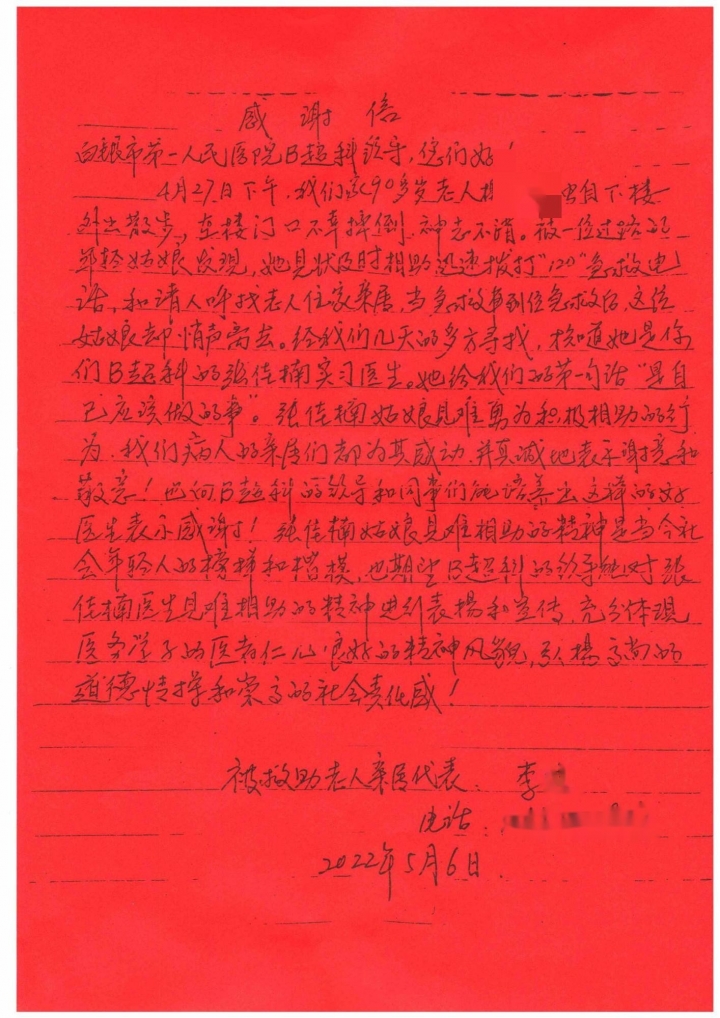 感谢信
白银市第一人民医院B超科领导,您们好!
4月27日下午,我们家90多岁老人独自下楼
外出散步,在楼门口不幸摔倒,神志不清。被一位过路的
年轻姑娘发现,她见状及时相助迅速拨打"120"急救电
话,和请人呼找老人住家亲属,当急救车到位急救后,这位
姑娘却悄声离去。经我们几天的多方寻找,才知道她是你
们B超科的张佳楠实习医生。她给我们的第一句话"是自
己应该做的事"。张佳楠姑娘见难勇为积极相助的行
为,我们病人的亲属们都为其感动,并真诚地表示谢意和
敬意!也向B超科的领导和同事们能培养出这样的好
医生表示感谢!张佳楠姑娘见难相助的精神是当今社
会年轻人的榜样和楷模,也期望B超科的领导能对张
佳楠医生见难相助的精神进行表扬和宣传,充分体现
医务学子的医者仁心,良好的精神风貌,弘扬高尚的
道德情操和崇高的社会责任感!
被救助老人亲属代表:李
电话:
2022年5月6日